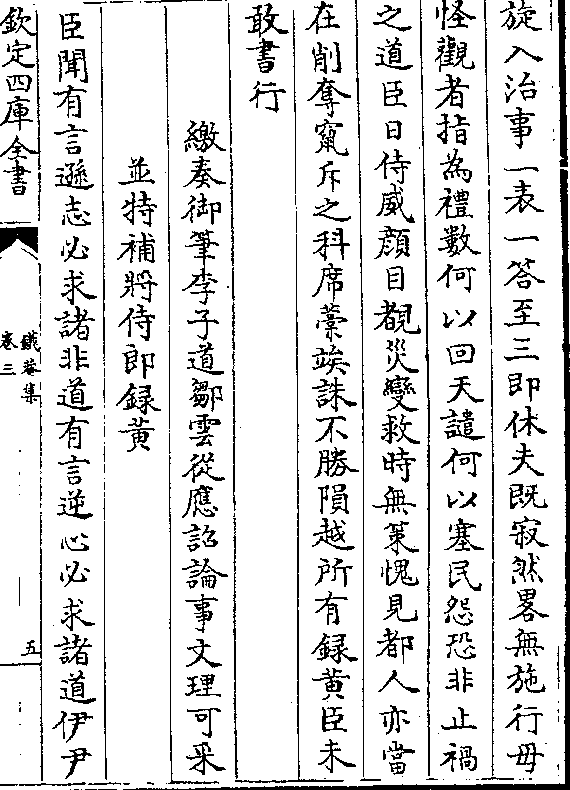 旋入治事一表一答至三即休夫既寂然畧無施行毋
怪觀者指為禮數何以回天譴何以塞民怨恐非止禍
之道臣日侍威顔目覩災變救時無策愧見都人亦當
在削奪竄斥之科席藁竢誅不勝隕越所有録黄臣未
敢書行
繳奏御筆李子道鄒雲從應詔論事文理可采
並特補將侍郎録黄
臣聞有言遜志必求諸非道有言逆心必求諸道伊尹
欽定四庫全書
鐵菴集
卷三
五